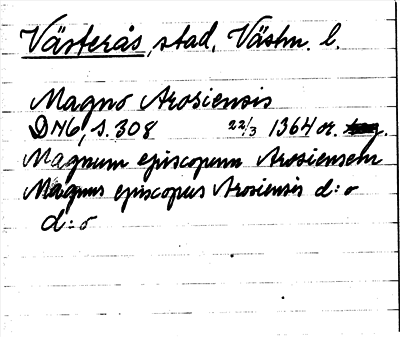 Västerås, stad, Västm. l.
Magno Arosiensis
DN6, s. 308 22/3 1364 or.
Magnum episcopum Arosiensem
Magnus episcopus Arosiensis d:o
d:o